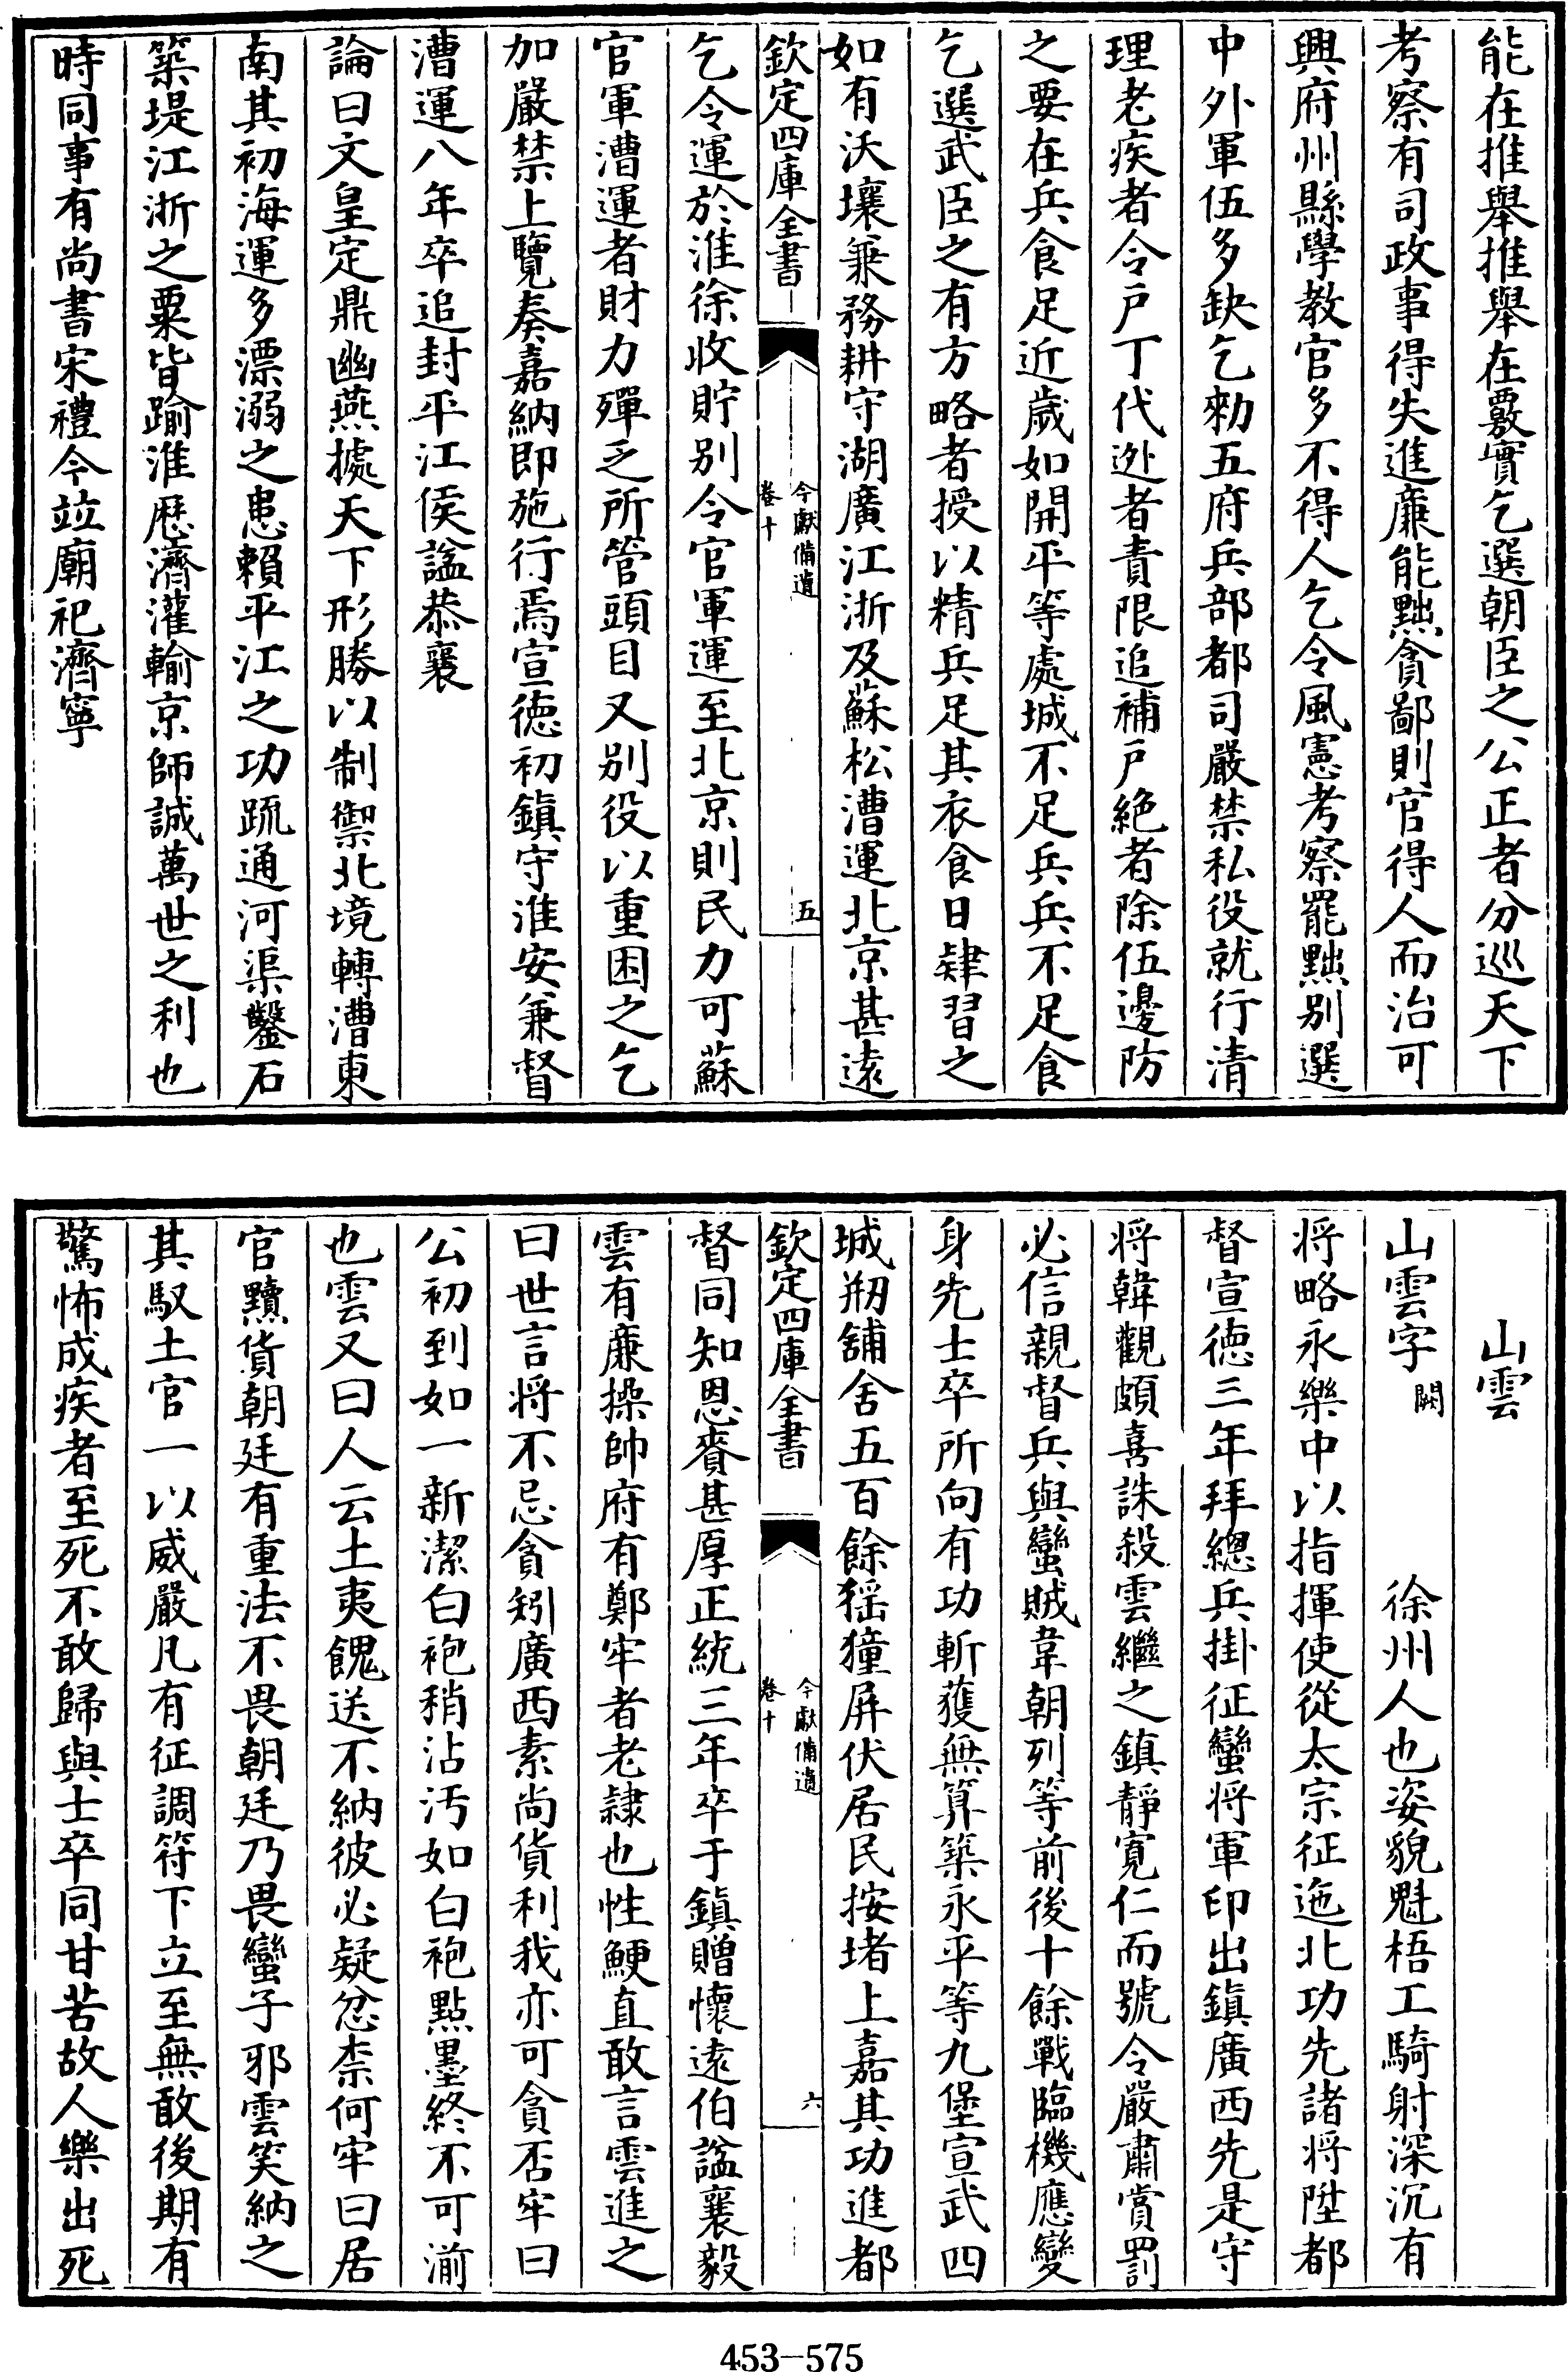 能在推舉推舉在覈實乞選朝臣之公正者分巡天下
考察有司政事得失進廉能黜貪鄙則官得人而治可
興府州縣學教官多不得人乞令風憲考察罷黜别選
中外軍伍多缺乞勑五府兵部都司嚴禁私役就行清
理老疾者令戶丁代逃者責限追補戶絶者除伍邊防
之要在兵食足近歲如開平等處城不足兵兵不足食
乞選武臣之有方略者授以精兵足其衣食日肄習之
如有沃壤兼務耕守湖廣江浙及蘇松漕運北京甚逺
欽定四庫全書
今獻備遺
卷十
五
乞令運於淮徐收貯别令官軍運至北京則民力可蘇
官軍漕運者財力殫乏所管頭目又别役以重困之乞
加嚴禁上覽奏嘉納即施行焉宣徳初鎮守淮安兼督
漕運八年卒追封平江侯諡恭襄
論曰文皇定鼎幽燕據天下形勝以制禦北境轉漕東
南其初海運多漂溺之患賴平江之功疏通河渠鑿石
築堤江浙之粟皆踰淮厯濟灌輸京師誠萬世之利也
時同事有尚書宋禮今竝廟祀濟寧
山雲
山雲字闕徐州人也姿貌魁梧工騎射深沉有
将略永樂中以指揮使從太宗征迤北功先諸将陞都
督宣徳三年拜總兵掛征蠻将軍印出鎮廣西先是守
将韓觀頗喜誅殺雲繼之鎮靜寛仁而號令嚴肅賞罰
必信親督兵與蠻賊韋朝列等前後十餘戰臨機應變
身先士卒所向有功斬獲無算築永平等九堡宣武四
城剏舖舍五百餘猺獞屏伏居民按堵上嘉其功進都
欽定四庫全書
今獻備遺
卷十
六
督同知恩賚甚厚正統三年卒于鎮贈懷逺伯諡襄毅
雲有廉操帥府有鄭牢者老隷也性鯁直敢言雲進之
曰世言将不忌貪矧廣西素尚貨利我亦可貪否牢曰
公初到如一新潔白袍稍沾汚如白袍點墨終不可湔
也雲又曰人云土夷餽送不納彼必疑忿柰何牢曰居
官黷貨朝廷有重法不畏朝廷乃畏蠻子邪雲笑納之
其馭土官一以威嚴凡有征調符下立至無敢後期有
驚怖成疾者至死不敢歸與士卒同甘苦故人樂出死
453—575